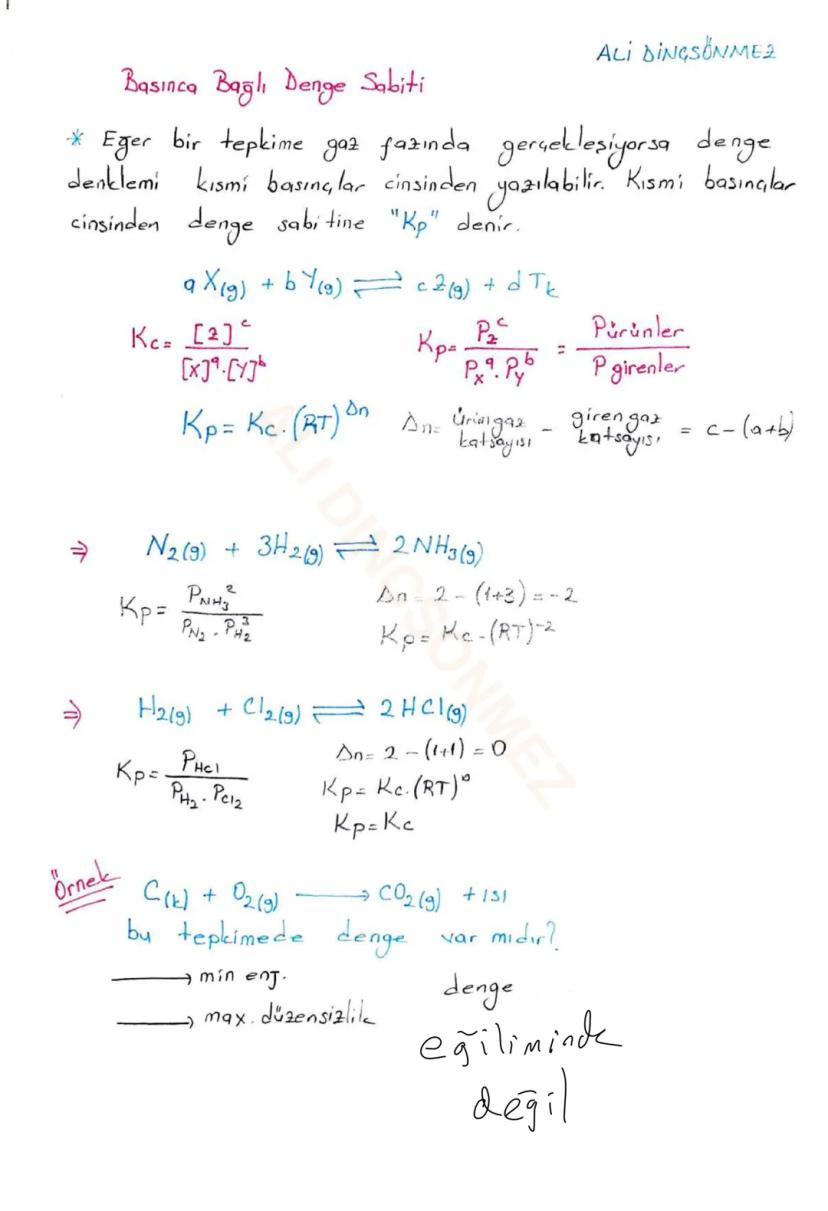 ALİ DİNÇSÖNMEZ
Basınca Bağlı Denge Sabiti
* Eğer bir tepkime gaz fazında gerçekleşiyorsa denge
denklemi kısmi basınçlar cinsinden yazılabilir. Kısmi basınçlar
cinsinden denge sabitine "Kp" denir.
aX(g) + bY(g) ⇌ cZ(g) + dTk
Kc = [Z]^c / [X]^a.[Y]^b Kp = Pz^c / Px^a.Py^b = Pürünler / Pgirenler
Kp = Kc.(RT)^Δn Δn = ürün gaz katsayısı - giren gaz katsayısı = c-(a+b)
ALİ DİNÇSÖNMEZ
⇒ N2(g) + 3H2(g) ⇌ 2NH3(g)
Kp = PNH3^2 / PN2.PH2^3 Δn = 2-(1+3) = -2
Kp = Kc.(RT)^-2
⇒ H2(g) + Cl2(g) ⇌ 2HCl(g)
Kp = PHCl / PH2.PCl2 Δn = 2-(1+1) = 0
Kp = Kc.(RT)^0
Kp = Kc
Örnek C(k) + O2(g) → CO2(g) + ısı
bu tepkimede denge var mıdır?
→ min enj.
→ max. düzensizlik
denge
eğiliminde
değil